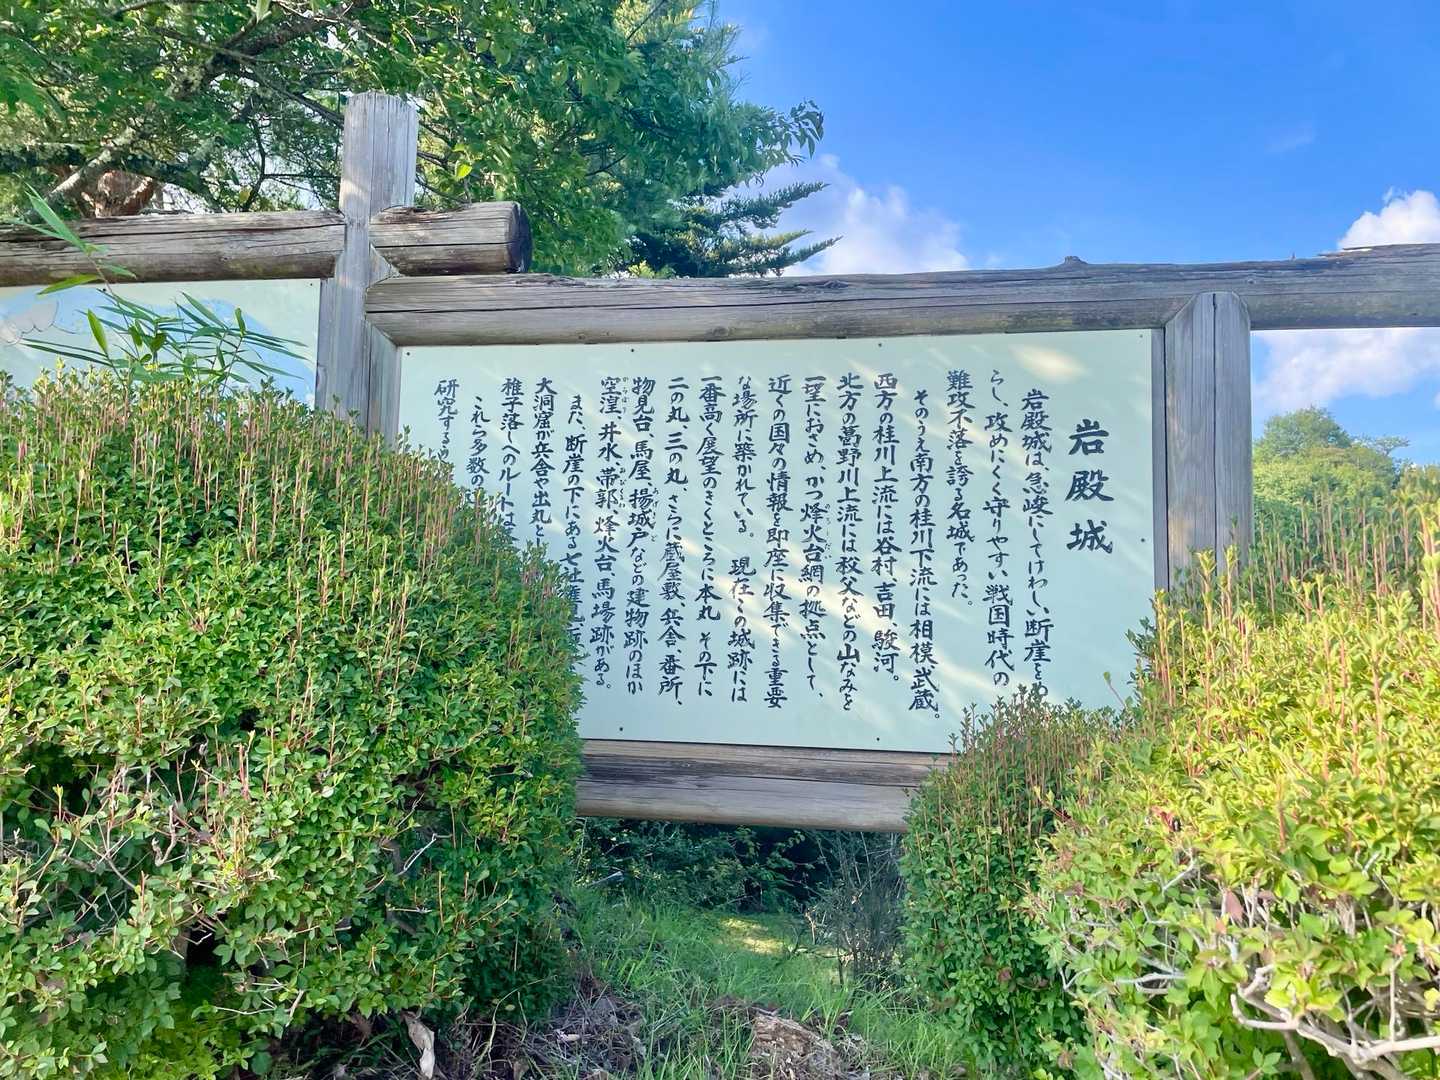 岩殿城
岩殿城は、急峻にしてけわしい断崖をめ
らし、攻めにくく守りやすい戦国時代の
難攻不落を誇る名城であった。
そのうえ南方の桂川下流には相模武蔵。
西方の桂川上流には谷村、吉田、駿河。
北方の葛野川上流には秩父などの山なみを
一望におさめ、かつ烽火台網の拠点として、
近くの国々の情報を即座に収集できる重要
な場所に築かれている。現在この城跡には
一番高く展望のきくところに本丸 その下に
二の丸、三の丸、さらに蔵屋敷、兵舎、番所、
物見台、馬屋、揚城戸などの建物跡のほか
空湟、井水、帯郭、烽火台、馬場跡がある。
また、断崖の下にある七社権現
大洞窟が兵舎や出丸と
稚子落しへのルートは
これら多数の
研究する